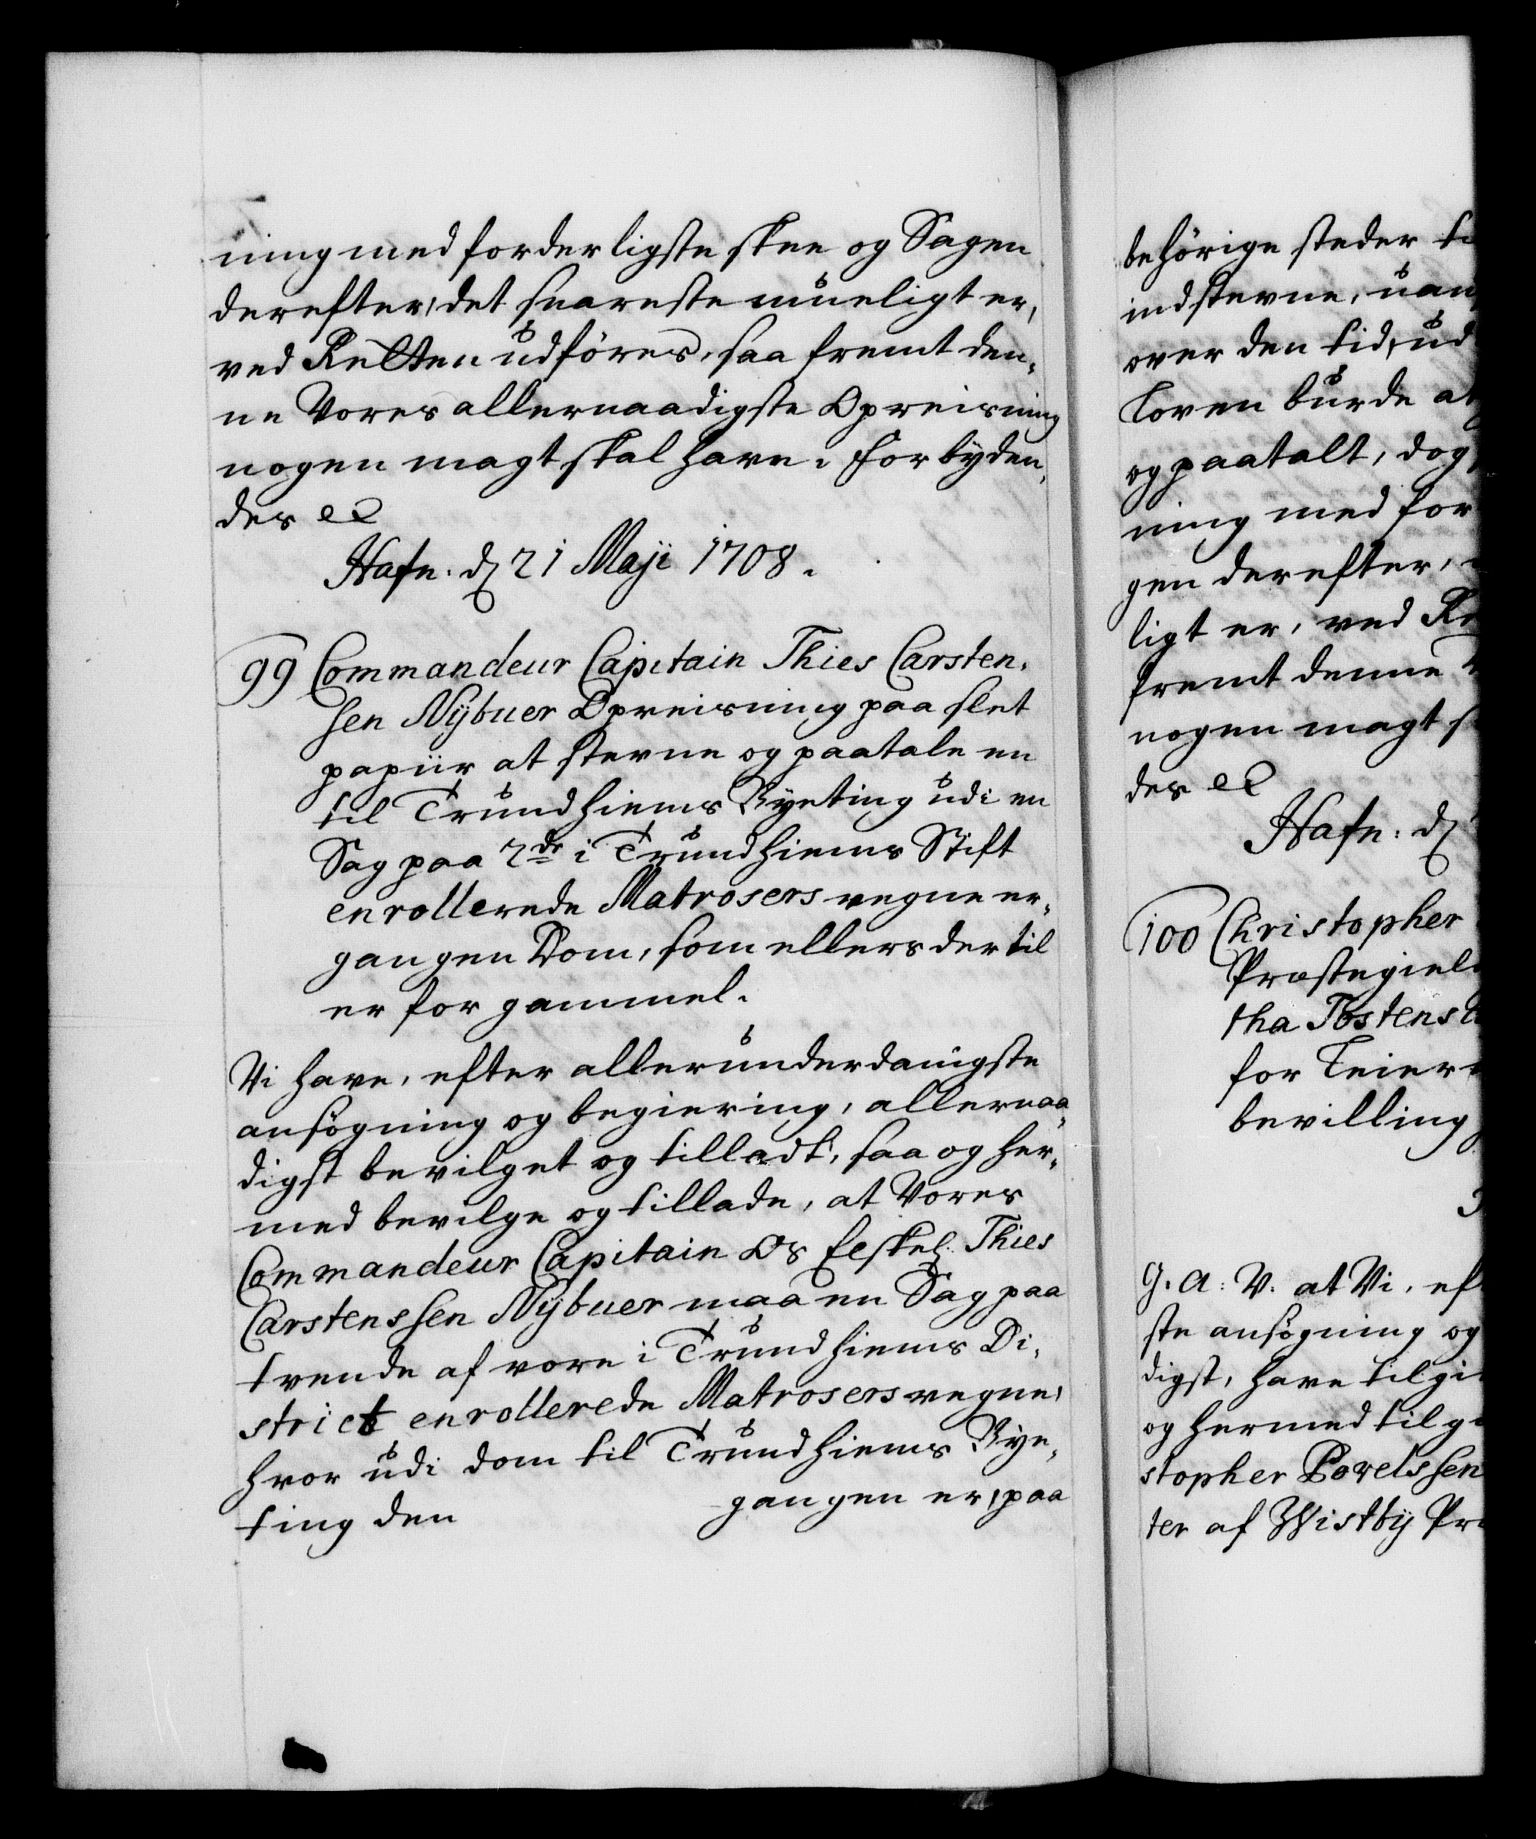 ning med forderligste skee og Sagen
derefter, det snareste mueligt er,
ved Retten udföres, saa fremt den¬
ne Vores allernaadigste Opreisning
nogen magt skal have. Forbyden¬
des etc
Hafn: d 21 Maji 1708.
99 Commandeur Capitain Thies Carsten¬
sen Nÿbuer Opreisning paa slet
papiir at stevne og paatale en
til Trundhiems Byeting udi en
Sag paa 2de i Trundhiems Stift
enrollerede Matrosers vegne er¬
gangen Dom, som ellers dertil
er for gammel.
Vi have, efter allerunderdanigste
ansögning og begiering, allernaa¬
digst bevilget og tilladt, saa og her¬
med bevilge og tillade, at Vores
Commandeur Capitain Os Elskel. Thies
Carstenssen Nÿbuer maa en Sag paa
tvende af vore i Trundhiems Di¬
strict enrollerede Matrosers vegne,
hvor udi dom til Trundhiems Bye¬
ting den gangen er, paa
behörige steder
indstevne, uan
over den tid, ud
Loven burde
og paatalt, dog
ning med for
gen derefter,
ligt er, ved
fremt denne
nogen magt
des etc
Hafn: d
100 Christopher
Præstegiel
tha Tostens
for Leier
bevilling
G. A: V. at Vi, ef
ste ansögning og
digst, have tilgi
og hermed tilgi
stopher Povelssen
ter af Wistbÿ Pr